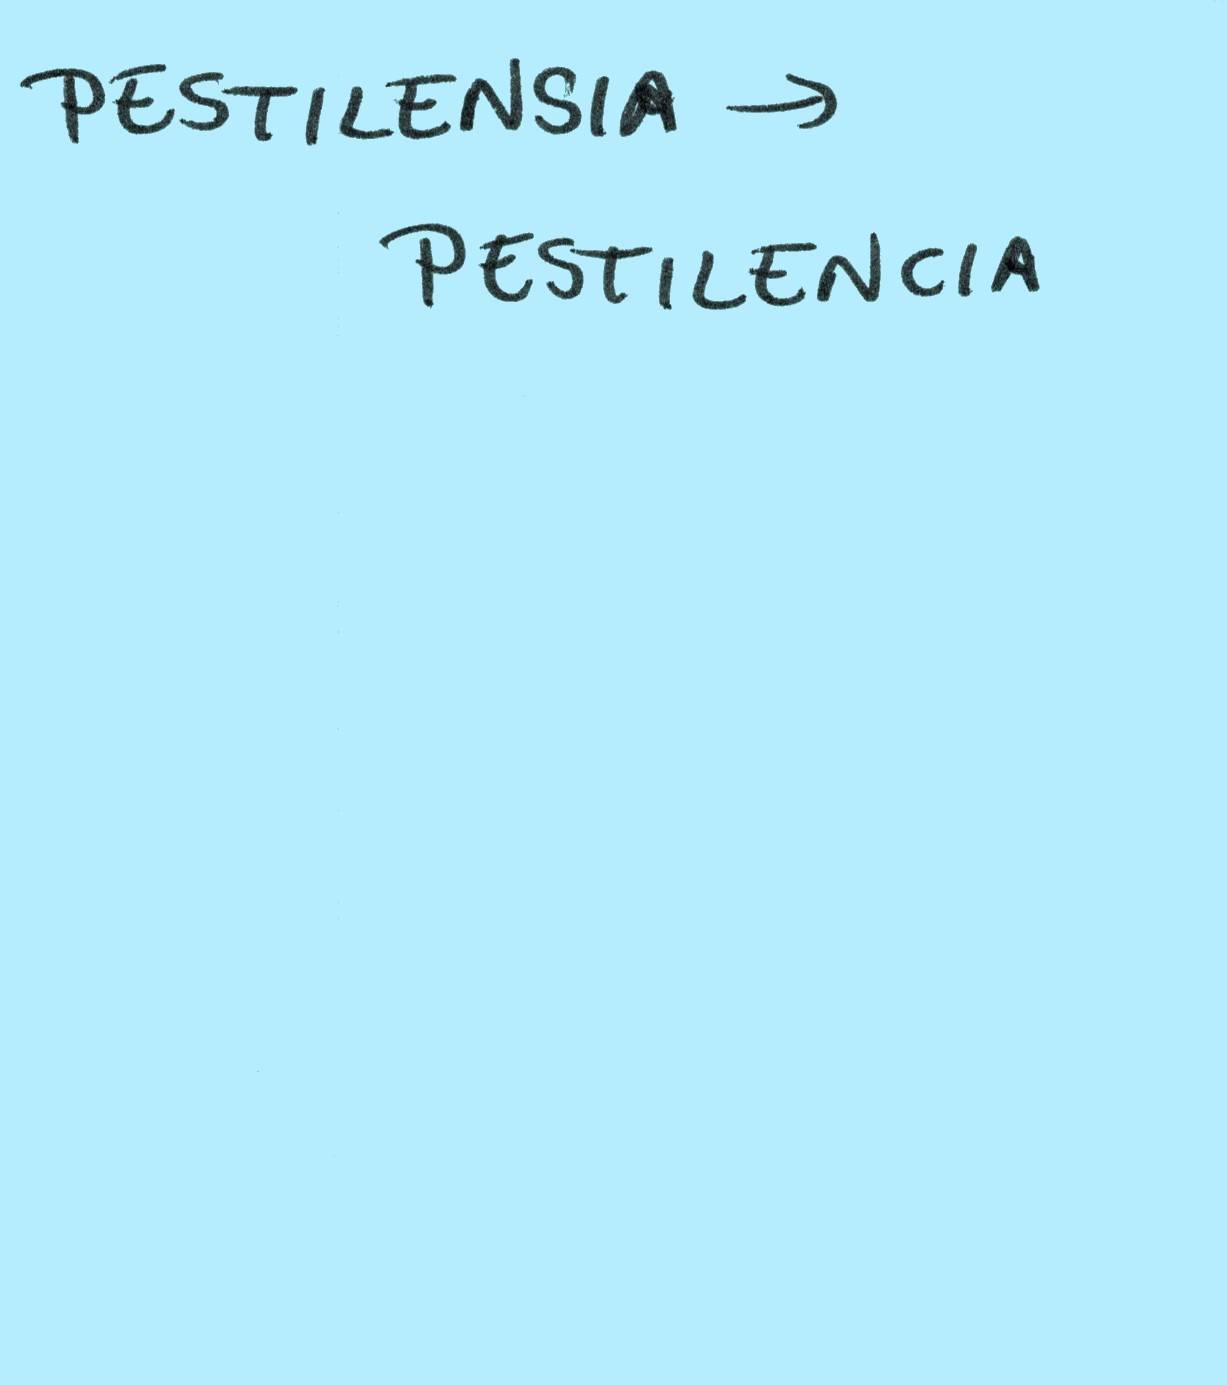 PESTILENSIA →
PESTILENCIA